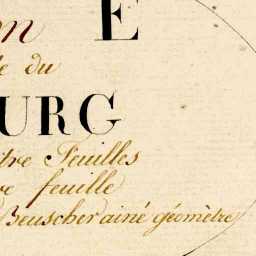 on E
le du
URG
tre Feuilles
re feuille
Beuscher ainé géomètre